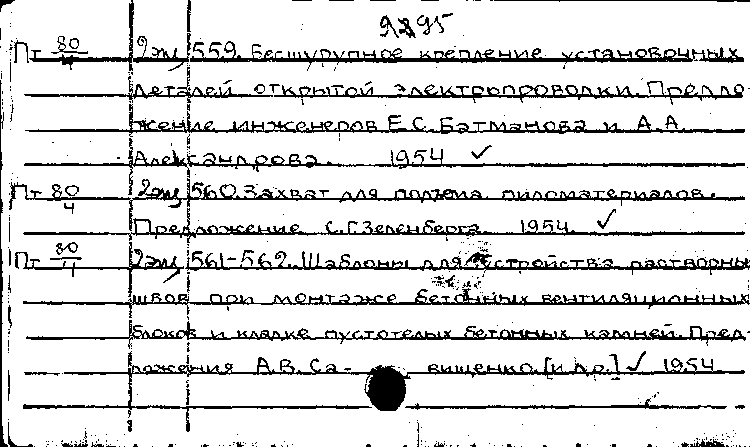 Пт 80/4 2эк, 559. Бесшурупное крепление установочных
деталей открытой электропроводки. Предло-
жение инженеров Е.С. Батманова и А.А.
Александрова. 1954 ✓
Пт 80/4 2эк, 560. Захват для подъема пиломатериалов.
Предложение С.Г. Зеленберга. 1954. ✓
Пт 80/4 2эк, 561-562. Шаблоны для устройства растворных
швов при монтаже бетонных вентиляционных
блоков и кладке пустотелых бетонных камней. Пред-
ложения А.В. Са- вищенко. [и др.] ✓ 1954